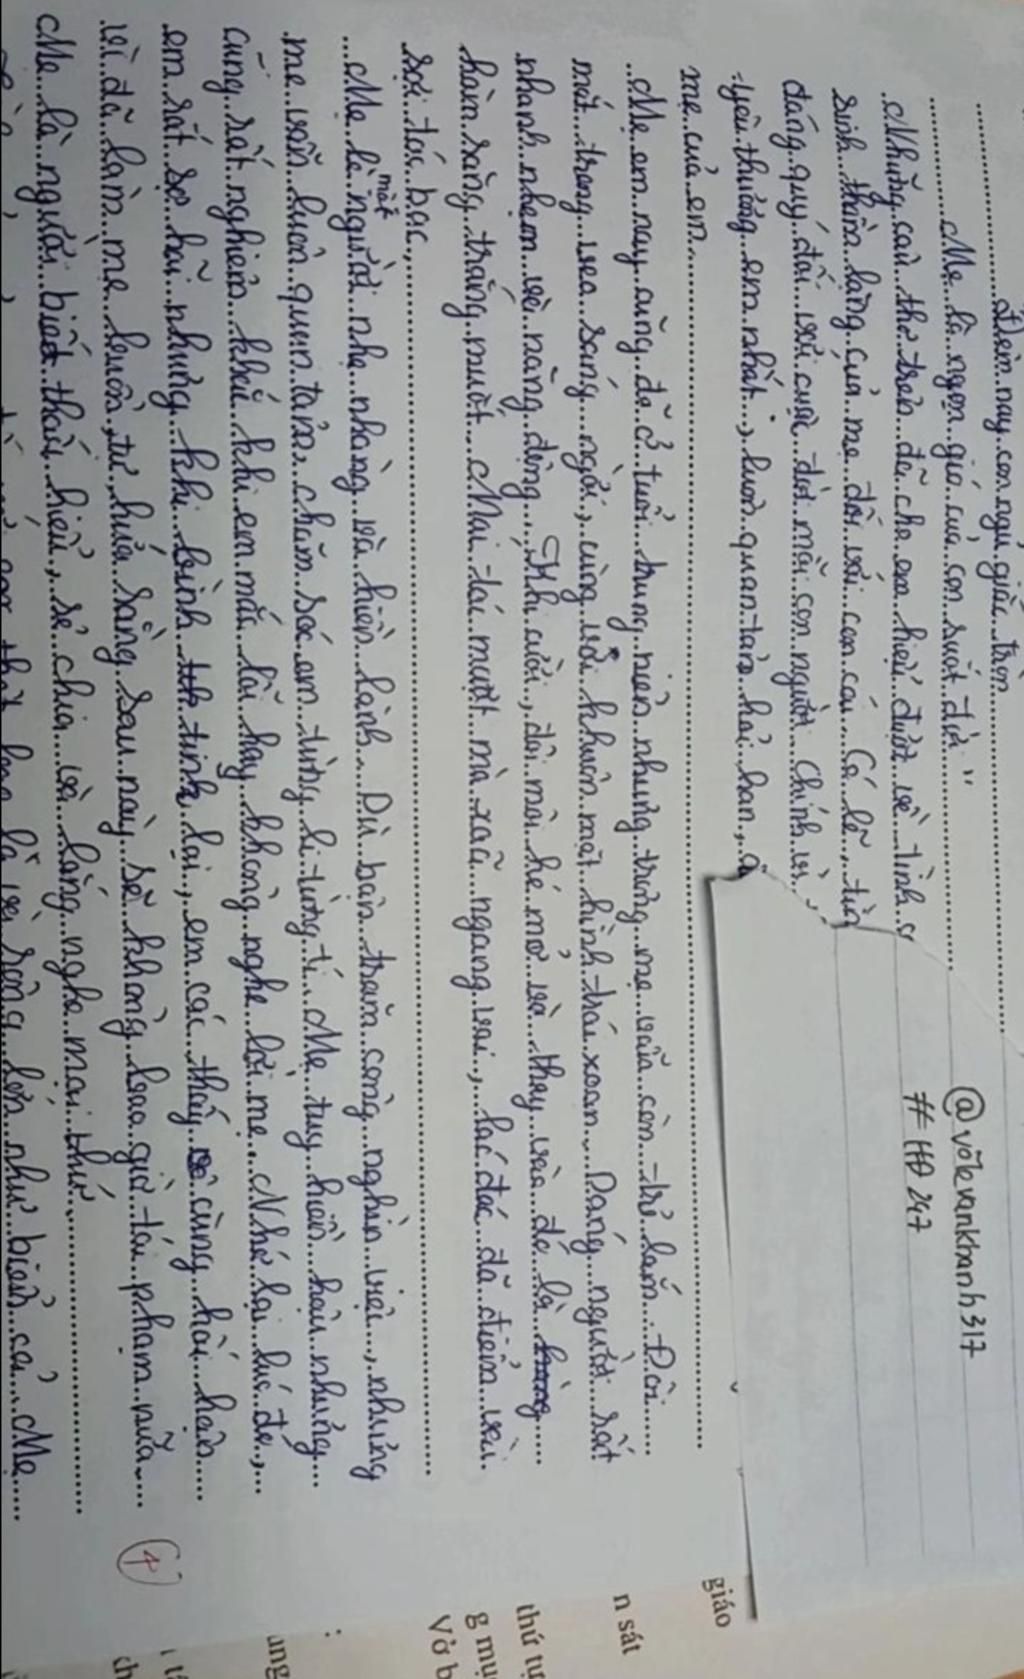 Đêm nay con ngủ giấc tròn
Mẹ là ngọn gió của con suốt đời"
Những câu thơ trên đã cho em hiểu được về tình
sinh thầm lặng của mẹ đối với con cái. Có lẽ,
đáng quý đối với cuộc đời mỗi con người. Chính vì,
yêu thương em nhất, luôn quan tâm hỏi han,
mẹ của em.
Mẹ em nay cũng đã ở tuổi trung niên nhưng trông mẹ vẫn còn trẻ lắm. Đôi
mắt trong veo sáng ngời, cùng với khuôn mặt hình trái xoan. Dáng người rất
nhanh nhẹn và năng động. Khi cười, đôi môi hé mở và thay vào đó là
hàm răng trắng muốt. Mái tóc mượt mà xoã ngang vai, lác đác đã điểm vài
sợi tóc bạc.
Mẹ là một người nhẹ nhàng và hiền lành. Dù bận trăm công nghìn việc, nhưng
mẹ vẫn luôn quan tâm chăm sóc em từng li từng tí. Mẹ tuy hiền hậu nhưng
cũng rất nghiêm khắc khi em mắc lỗi hay không nghe lời mẹ. Nhớ lại lúc đó,
em rất sợ hãi nhưng khi bình tĩnh lại, em cảm thấy vô cùng hối hận
vì đã làm mẹ buồn, tự hứa rằng sau này sẽ không bao giờ tái phạm nữa.
Mẹ là người biết thấu hiểu, sẻ chia và lắng nghe mọi thứ.
lớn như biển cả. Mẹ
@võlevankhanh317
#HĐ247
4
giáo
n sát
thứ tự
g mụ
Vở b
:
ung